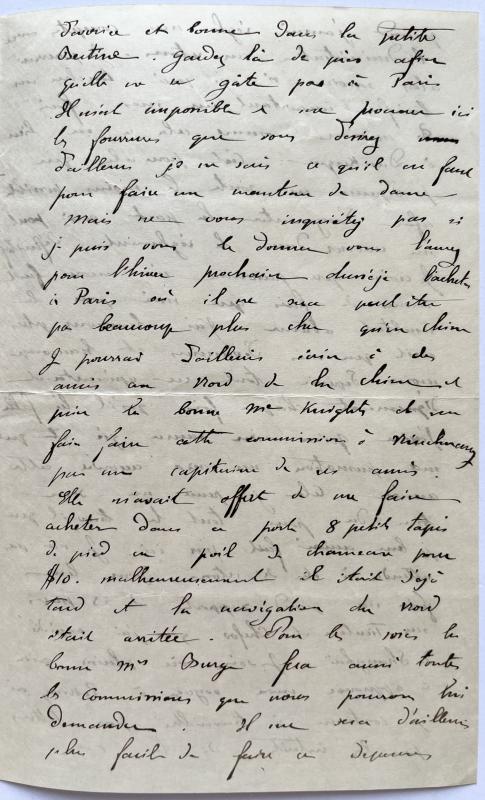 et bonne dans la petite
Bertine. Gardez là de près afin
qu'elle ne se gâte pas à Paris
Il m'est impossible de me procurer ici
les fourrures que vous désirez
d'ailleurs je ne sais ce qu'il en faut
pour faire un manteau de dame
mais ne vous inquiétez pas si
je puis vous le donner vous l'aurez
pour l'hiver prochain dussé-je l'acheter
à Paris où il ne sera peut être
pas beaucoup plus cher qu'en Chine
Je pourrai d'ailleurs écrire à des
amis au Nord de la Chine et
prier la bonne Me Knights de me
faire faire cette commission à
par un capitaine de ses amis.
Elle m'avait offert de me faire
acheter dans ce port 8 petits tapis
de pied en poil de chameau pour
$10. malheureusement il était déjà
tard et la navigation du Nord
était arrêtée. Pour les soies la
bonne Mrs fera aussi toutes
les commissions que nous pourrons lui
demander. Il me sera d'ailleurs
plus facile de faire ce